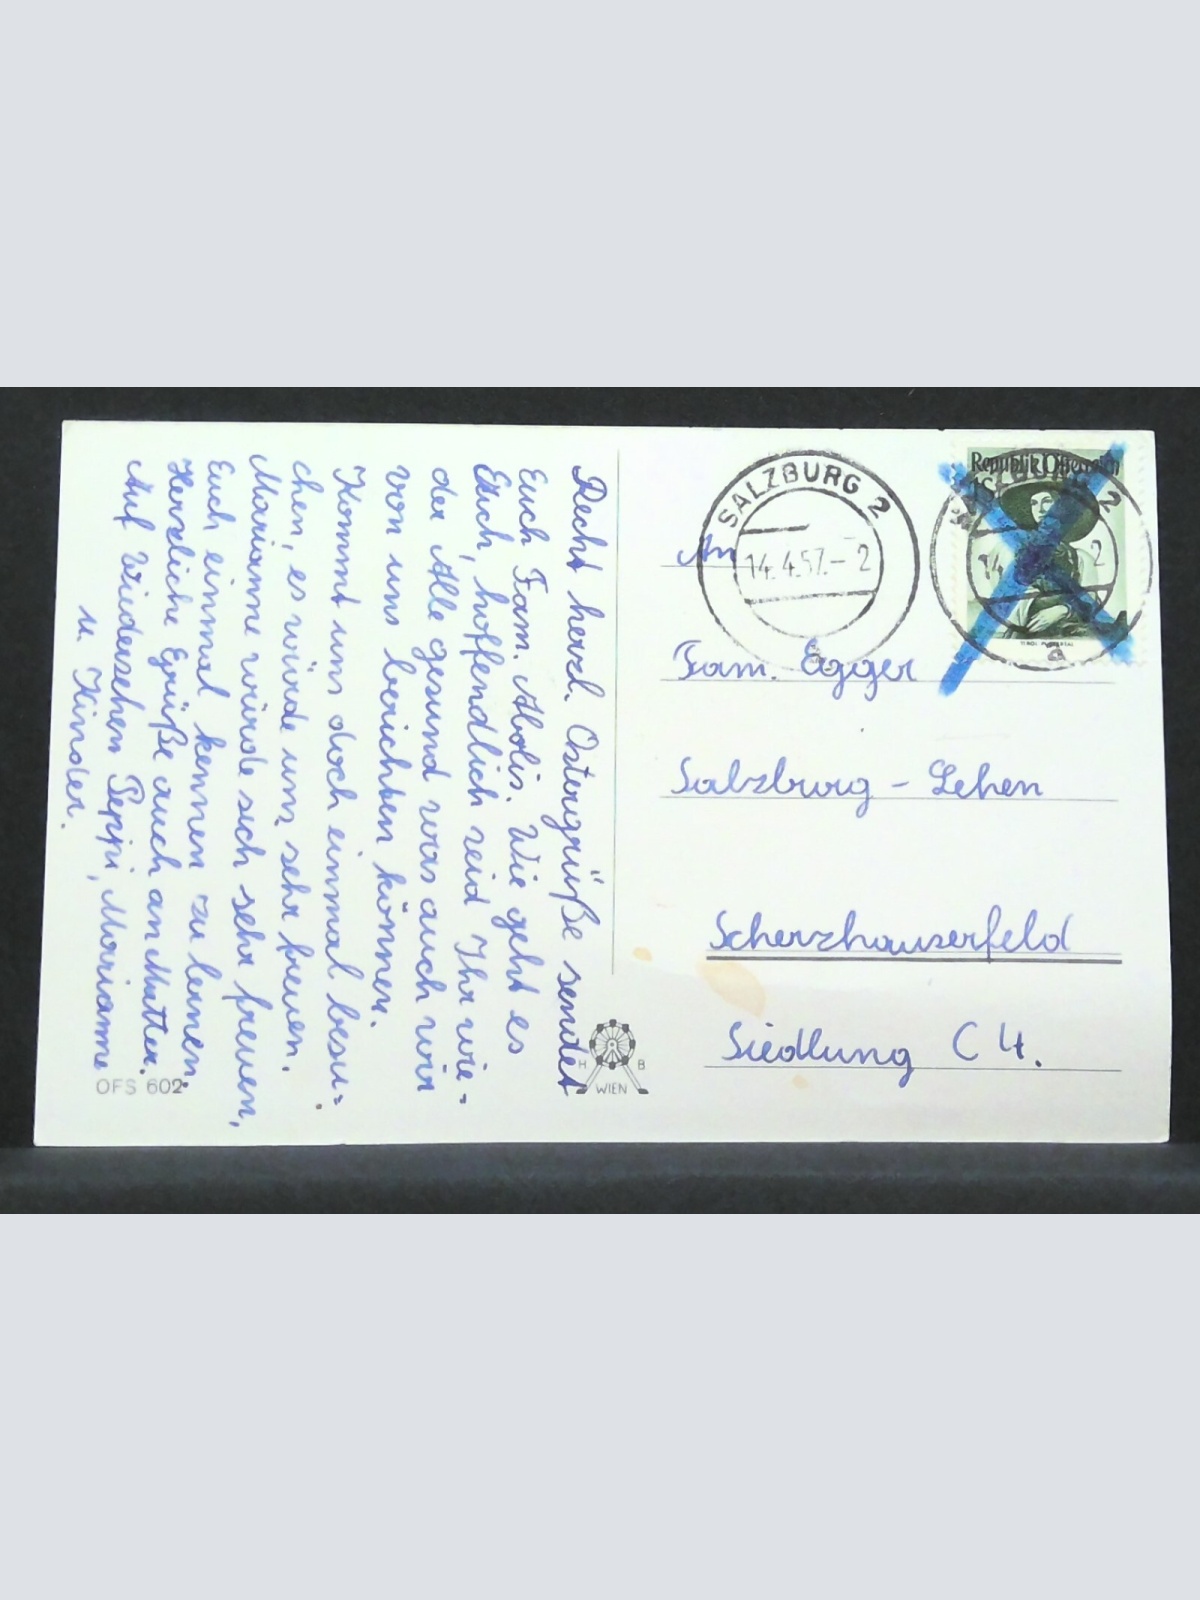 Recht herzl. Ostergrüße sendet
Euch Fam. Abolis. Wie geht es
Euch, hoffendlich seid Ihr wie-
der Alle gesund was auch wir
von uns berichten können.
Kommt uns doch einmal besu-
chen, es würde uns sehr freuen.
Marianne würde sich sehr freuen,
Euch einmal kennen zu lernen
Herzliche Grüße auch an Mutter.
Auf Wiedersehen Peppi, Marianne
u. Kinder.
OFS 602
H B
WIEN
SALZBURG 2
14.4.57.-2
a
Republik Österreich
14
2
2
a
An
Fam. Egger
Salzburg - Lehen
Scherzhauserfeld
Siedlung C 4.